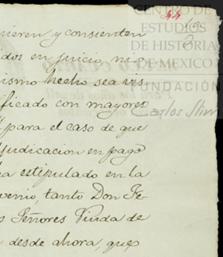 44
CENTRO DE
ESTUDIOS
DE HISTORIA
DE MEXICO
FUNDACIÓN
Carlos Slim
quieren y consienten
dos en juicio, ni
mismo hecho sea vis
ificado con mayores
para el caso de que
judicacion en pago
a estipulado en la
venio, tanto Don Fe
s Señores Viuda de
desde ahora, que